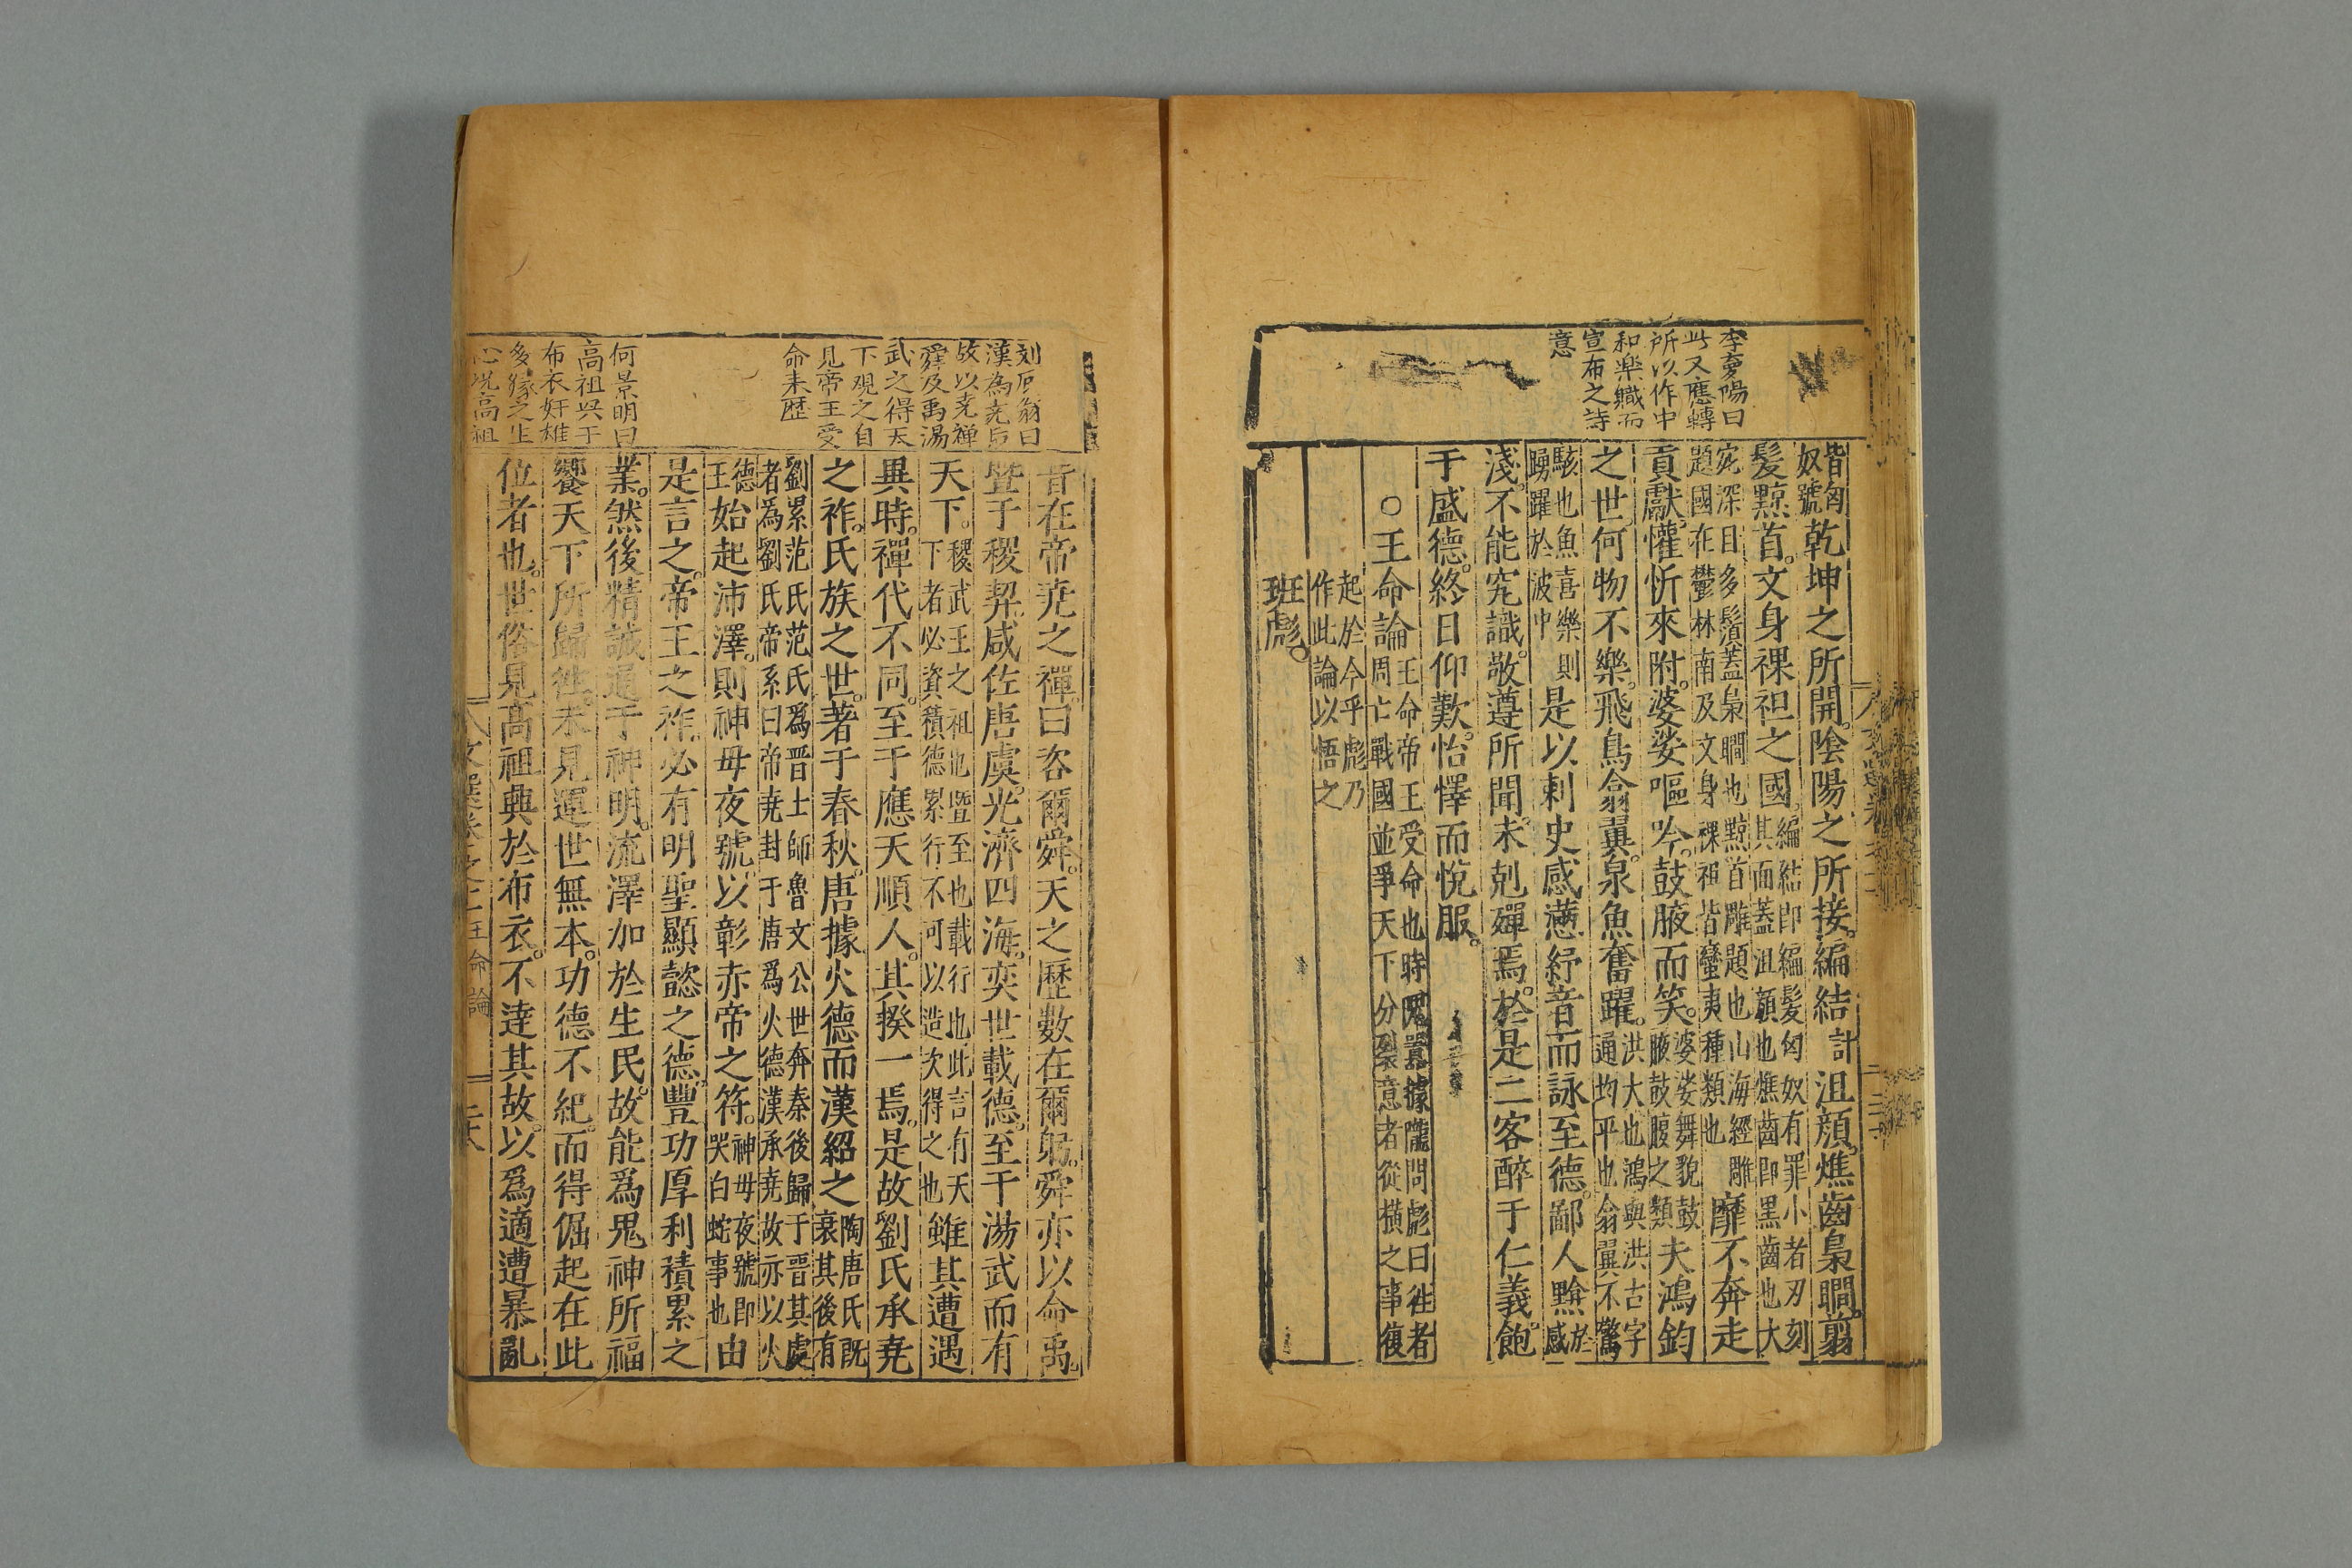 李夏陽曰
此又應轉
所以作中
和樂職而
宣布之詩
意
皆匈
奴號
乾坤之所開。陰陽之所接。編結計沮顏。燋齒梟瞯。翦
髮黥首。文身裸袒之國。
編結即編髮匈奴有罪小者刃刻
其面蓋沮顏也燋齒即黑齒也大
宛深目多鬚蓋梟瞯也黥首雕題也山海經雕
題國在鬱林南及文身裸袒皆蠻夷種類也
靡不奔走
貢獻。懽忻來附。婆娑嘔吟。鼓腋而笑。
婆娑舞貌鼓
腋鼓腹之類
夫鴻鈞
之世何物不樂。飛鳥翕翼。泉魚奮躍。
洪大也鴻與洪古字
通均平也翕翼不驚
駭也魚喜樂則
踴躍於波中
是以刺史感懣紓音而詠至德。鄙人黭
於
感
淺。不能究識。敬遵所聞。未剋殫焉。於是二客醉于仁義。飽
于盛德。終日仰歎。怡懌而悅服。
○王命論
王命帝王受命也時隗囂據隴問彪曰往者
周亡戰國並爭天下分裂意者從橫之事復
起於今乎彪乃
作此論以悟之
班彪。
劉辰翁曰
漢為堯后
故以堯禪
舜及禹湯
武之得天
下覌之自
見帝王受
命来歴
何景明曰
高祖興于
布衣奸雄
多縁之生
心説高祖
昔在帝堯之禪。曰咨爾舜。天之歷數在爾躬。舜亦以命禹。
暨于稷契。咸佐唐虞。光濟四海。奕世載德。至于湯武而有
天下。
稷武王之祖也暨至也載行也此言有天
下者必資積德累行不可以造次得之也
雖其遭遇
異時。禪代不同。至于應天順人。其揆一焉。是故劉氏承堯
之祚。氏族之世。著于春秋。唐據火德而漢紹之
陶唐氏既
衰其後有
劉累范氏范氏爲晋士師魯文公世奔秦後歸于晋其處
者爲劉氏帝系曰帝堯封于唐爲火德漢承堯故亦以火
德
王
始起沛澤。則神母夜號。以彰赤帝之符。
神母夜號即
哭白蛇事也
由
是言之。帝王之祚。必有明聖顯懿之德。豐功厚利積累之
業。然後精誠通于神明。流澤加於生民。故能爲鬼神所福
饗天下所歸往。未見運世無本。功德不紀。而得倔起在此
位者也。世俗見高祖興於布衣。不達其故。以爲適遭暴亂
王命論